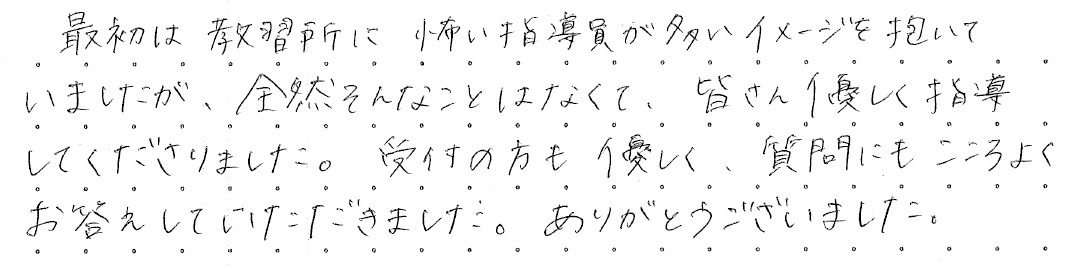 最初は教習所に怖い指導員が多いイメージを抱いて
いましたが、全然そんなことはなくて、皆さん優しく指導
してくださりました。受付の方も優しく、質問にもこころよく
お答えしていただきました。ありがとうございました。